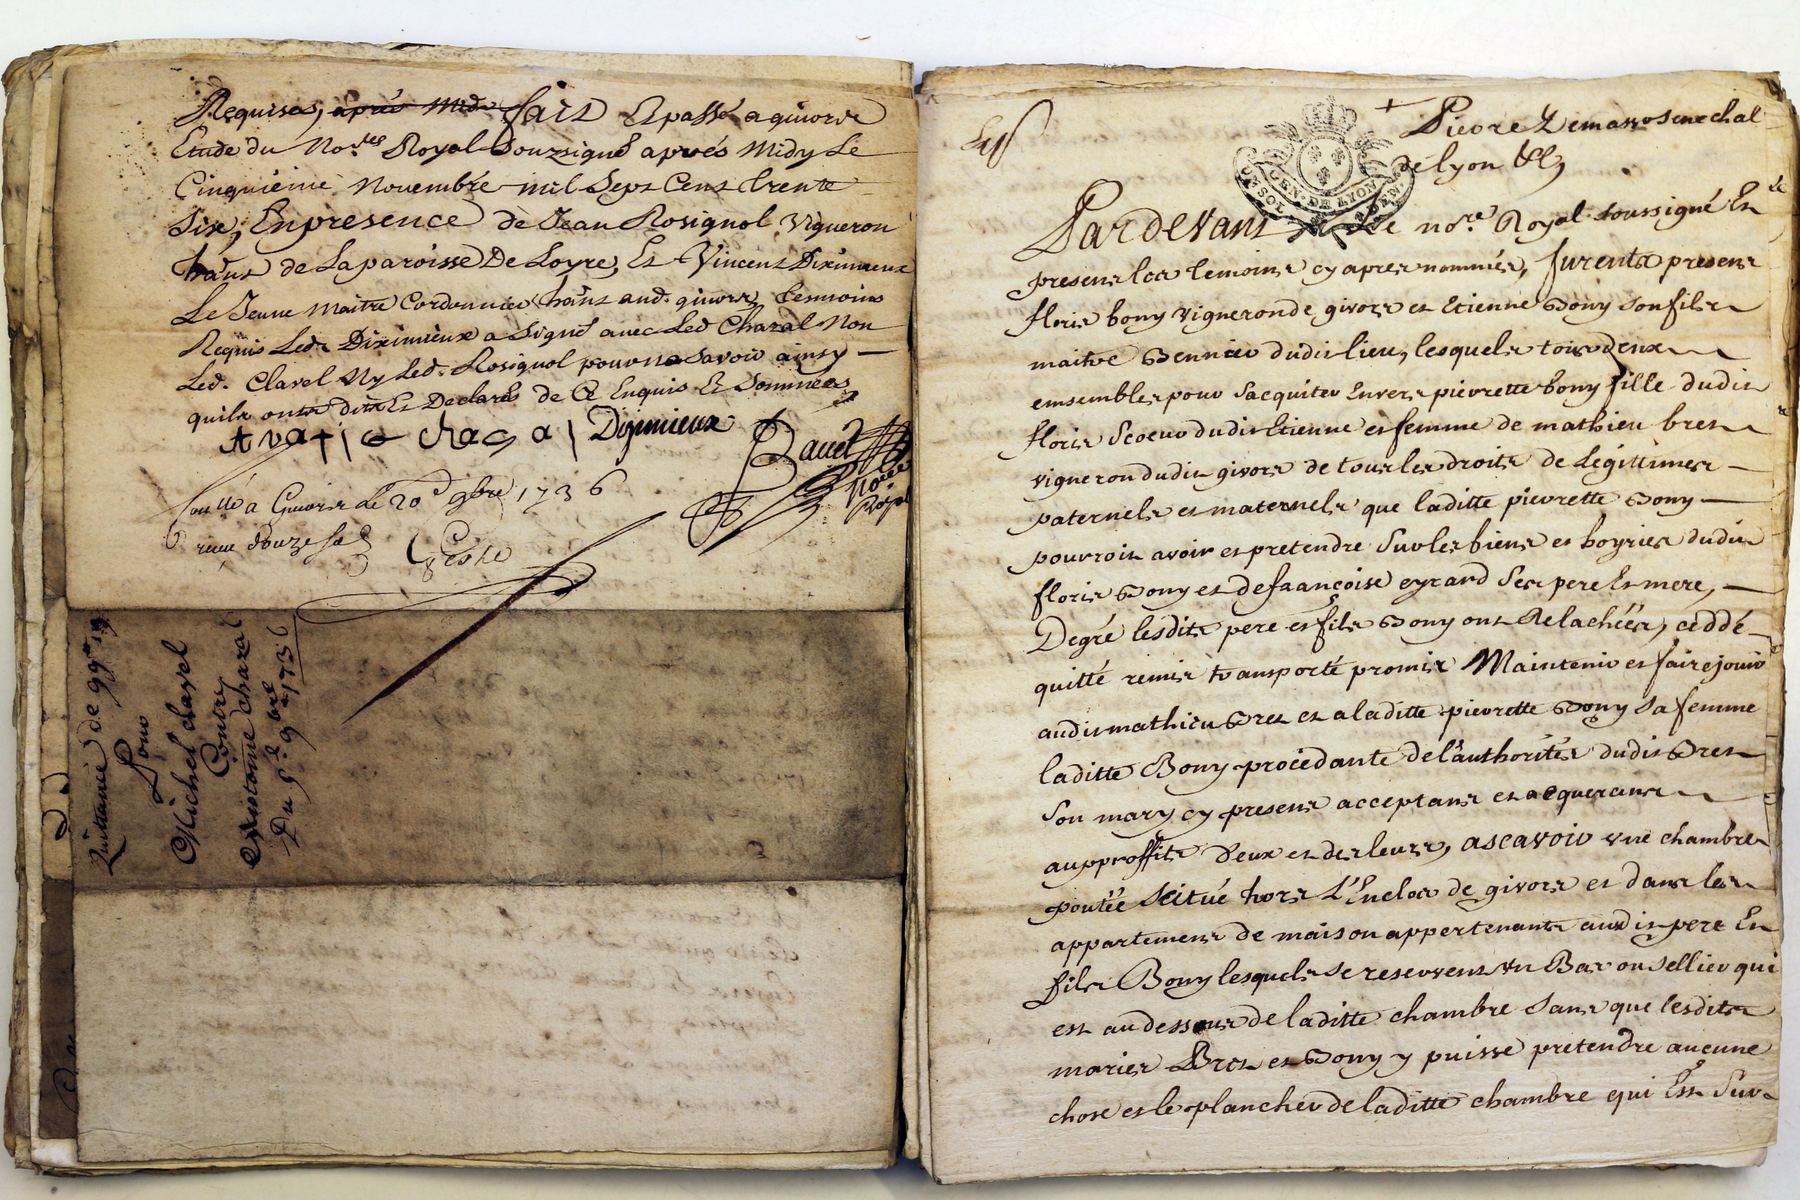 Requises, après Midy fait Et passé a givors
Etude du No.res Royal Souzsigné aprés Midy Le
Cinquieme Novembre mil Sept Cent trente
Six, En presence de Jean Rosignol Vigneron
hãnt de La paroisse De Loyre, Et Vincent Diximieux
Le Jeune Maitre Cordonnier hãnt aud. givors, temoins
Requis Led. Diximieux a Signé avec Led. Chazal Non
Led. Clavel Ny Led. Rosignol pour ne Savoir ainsy
quils ont dit Et Declarés de Ce Enquis Et Sommés
Diximieux
No.re Royal
a Givors le 20.e 9bre 1736
reçu douze
Quittance de 99.tt 19.s
Pour
Michel clavel
Contre
Antoine chazal
Du 5.e 9.bre 1736
Pierre
Senechal
de lyon &c
GEN. DE LYON
Pardevant Le no.re Royal soussigné Et
present les temoins cy apres nommés, furents present
floris bony vigneron de givors et Etienne Bony son fils
maitre Bennier dudit lieu, lesquels tous deux
emsembles pour Sacquiter Envers pierrette bony fille dudit
floris Scoeur dudit Etienne et femme de mathieu bret
vigneron dudit givors de tous les droits de Legittimes
paternels et maternels que laditte pierrette Bony
pourroit avoir et pretendre Sur les biens et hoyries dudit
floris Bony et de françoise eyrard Ses pere Et mere,
De gré lesdits pere et fils Bony ont Relachées, ceddé
quitté remis transporté promis Maintenir et faire jouir
audit mathieu Bret et a laditte pierrette Bony Sa femme
laditte Bony procedante de l'authorités dudit Bret
Son mary cy present acceptant et acquerant
aux proffits d'eux et des leurs, ascavoir une chambre
pontée Scitué hors L'Enclos de givors et dans les
appartement de maison appertenants audit pere Et
fils Bony lesquels se reservent un Bas ou sellier qui
est au dessous de laditte chambre Sans que lesdits
maries Bret et Bony y puisse pretendre aucune
chose et le plancher de laditte chambre qui Est Sur